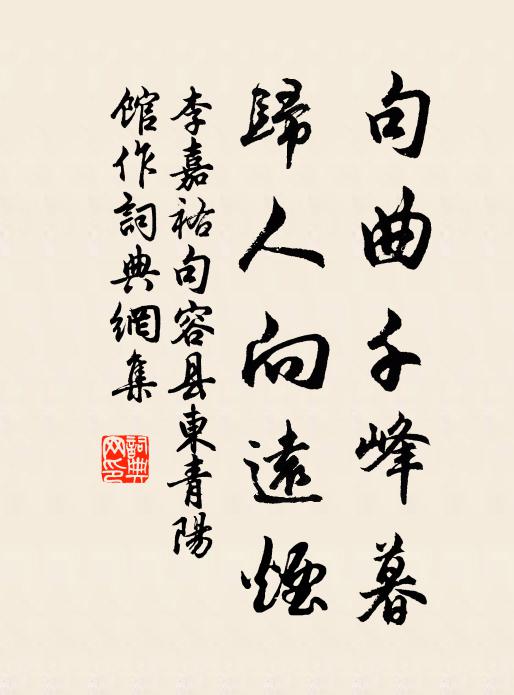 句曲千峰暮
歸人向遠煙
李嘉祐句容县東青陽
館作詞典網集
詞典网印